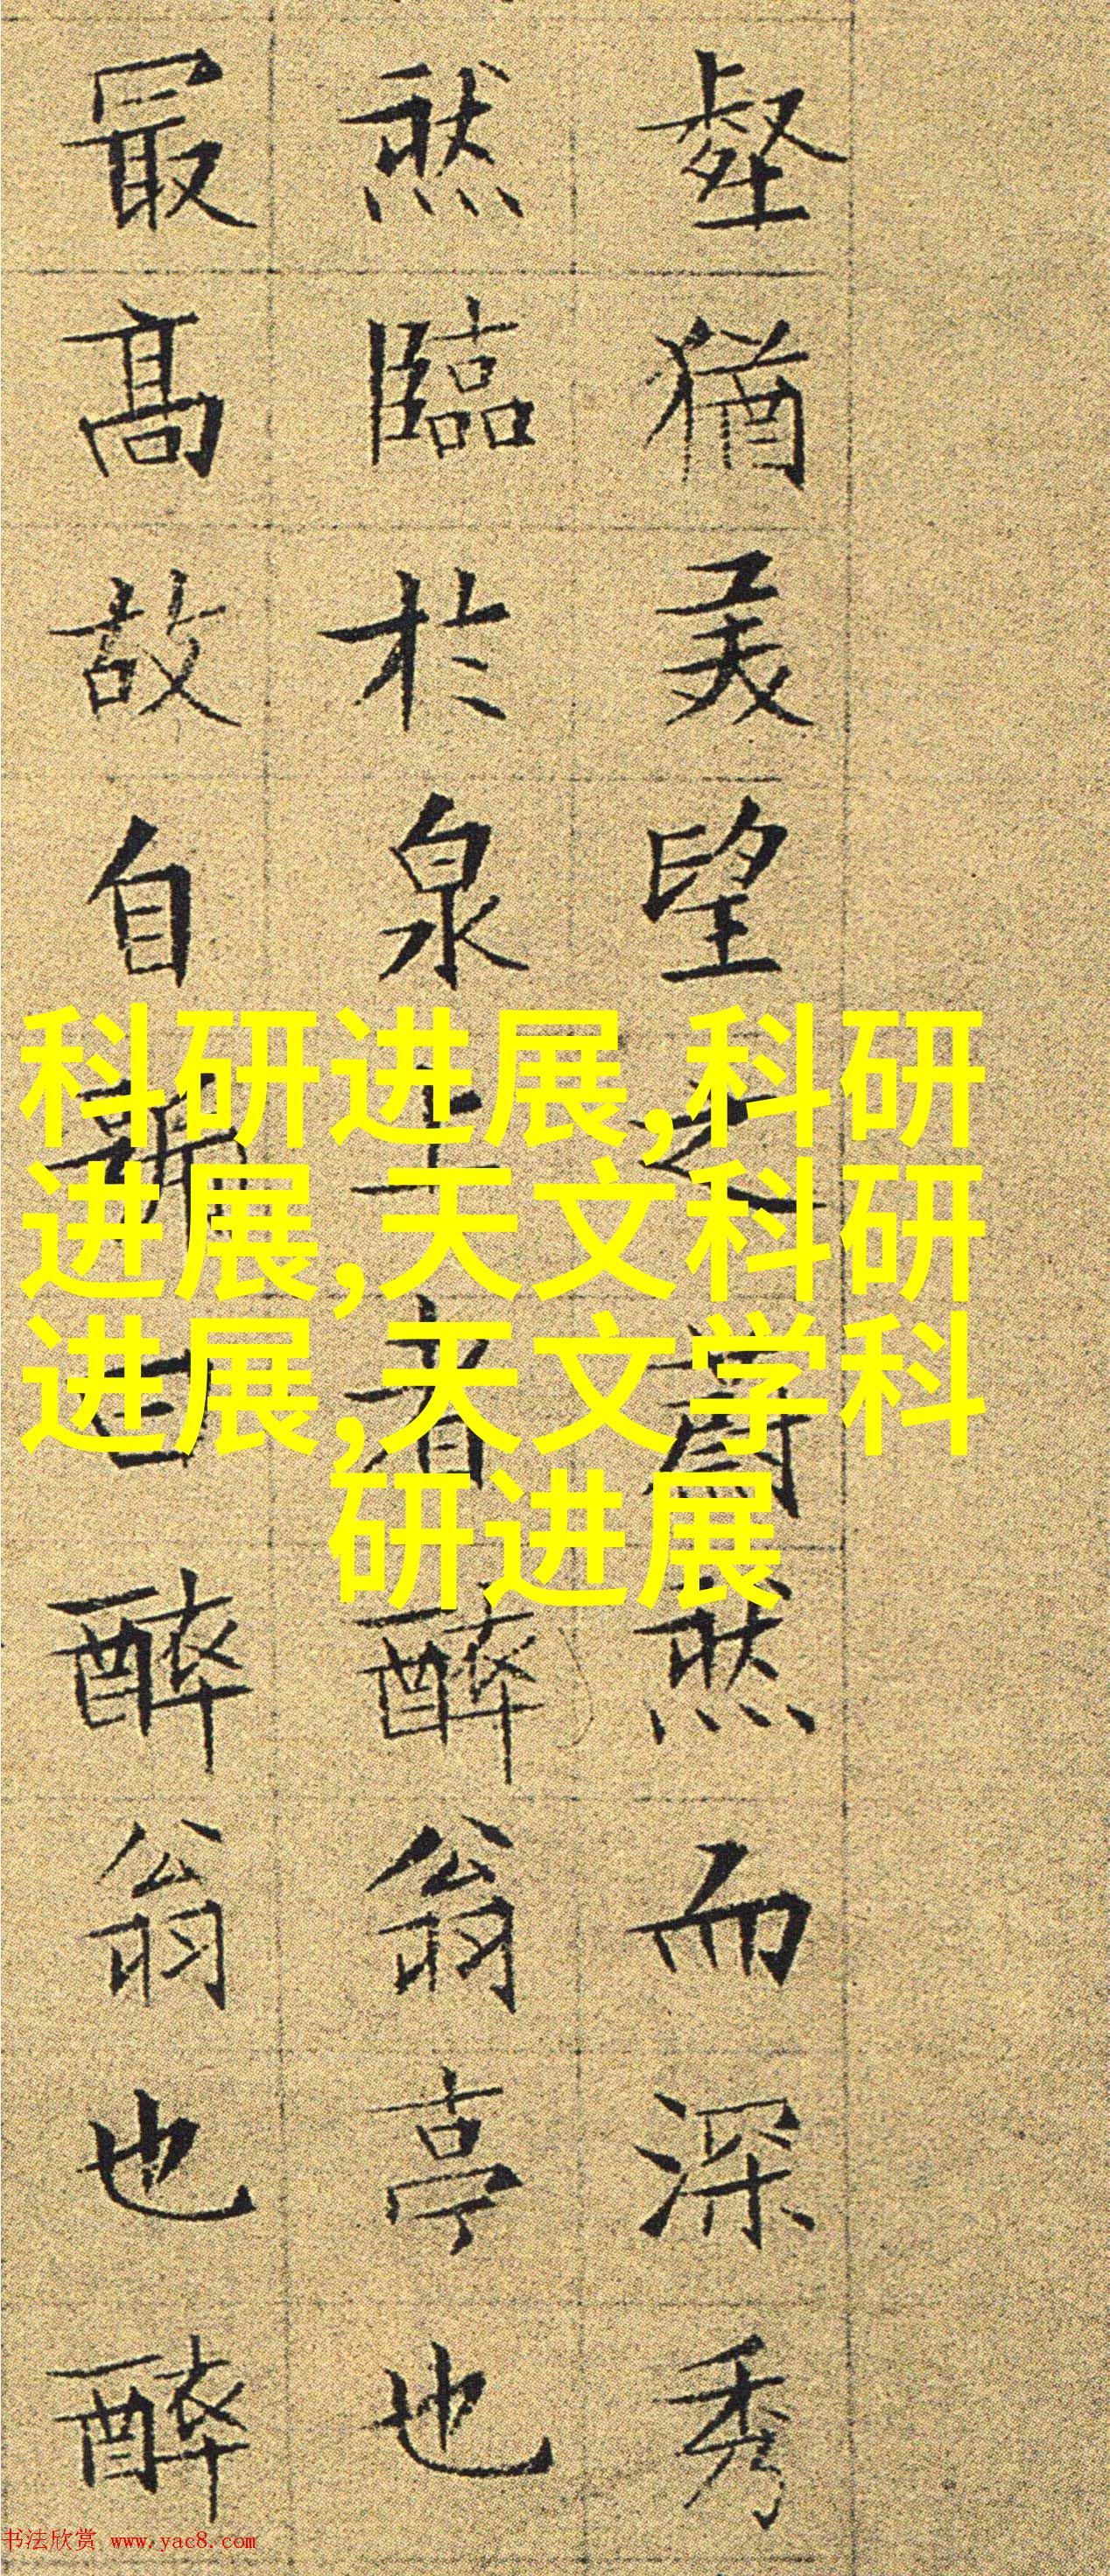 壑猶美望之蔚然而深秀
然臨於泉上者醉翁亭也
最高故自號曰醉翁也醉
科研进展,科研
进展,天文科研
进展,天文学科
研进展
书法欣赏 www.yac8.com